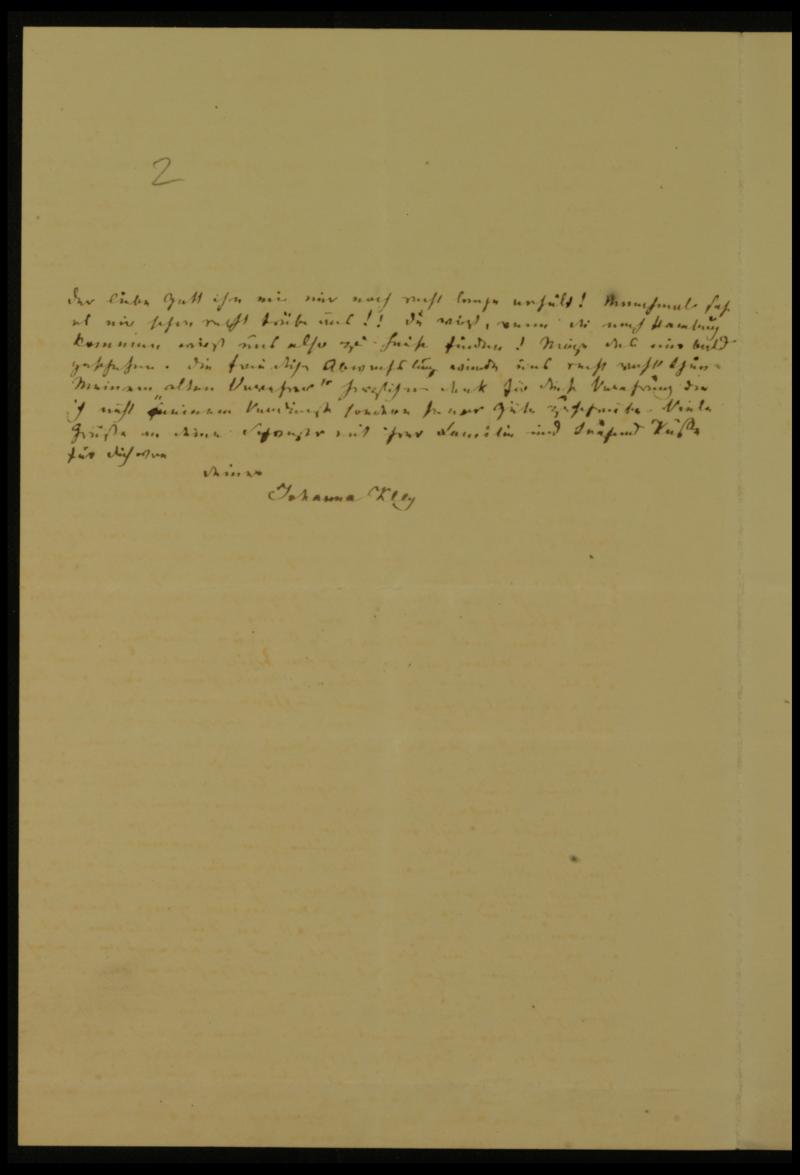 2
der liebe Gott ihn mir nur noch recht lange erhält! Manchmal
es mir schon recht trübe aus!! Du wirst, wenn du nach Hamburg
kommen wirst uns also zu Hause finden! Möge das nur bald
geschehen. Die freudige Abwechslung würde uns recht wohl thun.
Meinem alten Verehrer" herzlichen Dank für diese Verehrung die
ich nicht meinem Verdienste sondern seiner Güte zuschreibe. Viele
Grüße an deine Schwester mit ihrer Familie und tausend Küße
für dich von
deiner
Johanna Kley